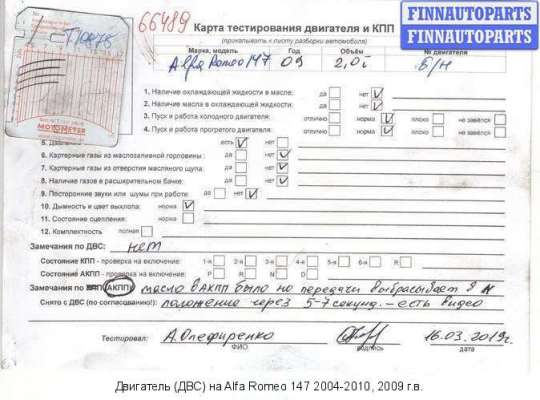 FINNAUTOPARTS
FINNAUTOPARTS
T10878
66489
MOTOMETER
Карта тестирования двигателя и КПП
(прикалывать к листу разборки автомобиля)
Марка, модель Год Объём № двигателя
Alfa Romeo 147 09 2,0i б/н
1. Наличие охлаждающей жидкости в масле: да нет
2. Наличие масла в охлаждающей жидкости: да нет
3. Пуск и работа холодного двигателя: отлично норма плохо не завёлся
4. Пуск и работа прогретого двигателя: отлично норма плохо не завёлся
5. Давление есть нет
6. Картерные газы из маслозаливной горловины: да нет
7. Картерные газы из отверстия масляного щупа: да нет
8. Наличие газов в расширительном бачке: да нет
9. Посторонние звуки или шумы при работе: да нет
10. Дымность и цвет выхлопа: норма
11. Состояние сцепления: норма
12. Комплектность полная
Замечания по ДВС: нет
Состояние КПП - проверка на включение: 1-я 2-я 3-я 4-я 5-я 6-я R
Состояние АКПП - проверка на включение: P R N D
Замечания по КПП АКПП масло в АКПП было но передачи выбрасывает в N
Снято с ДВС (по согласованию!): положение через 5-7 секунд. - есть видео
Тестировал: А.Олефиренко 16.03.2019г.
ФИО подпись дата
Двигатель (ДВС) на Alfa Romeo 147 2004-2010, 2009 г.в.